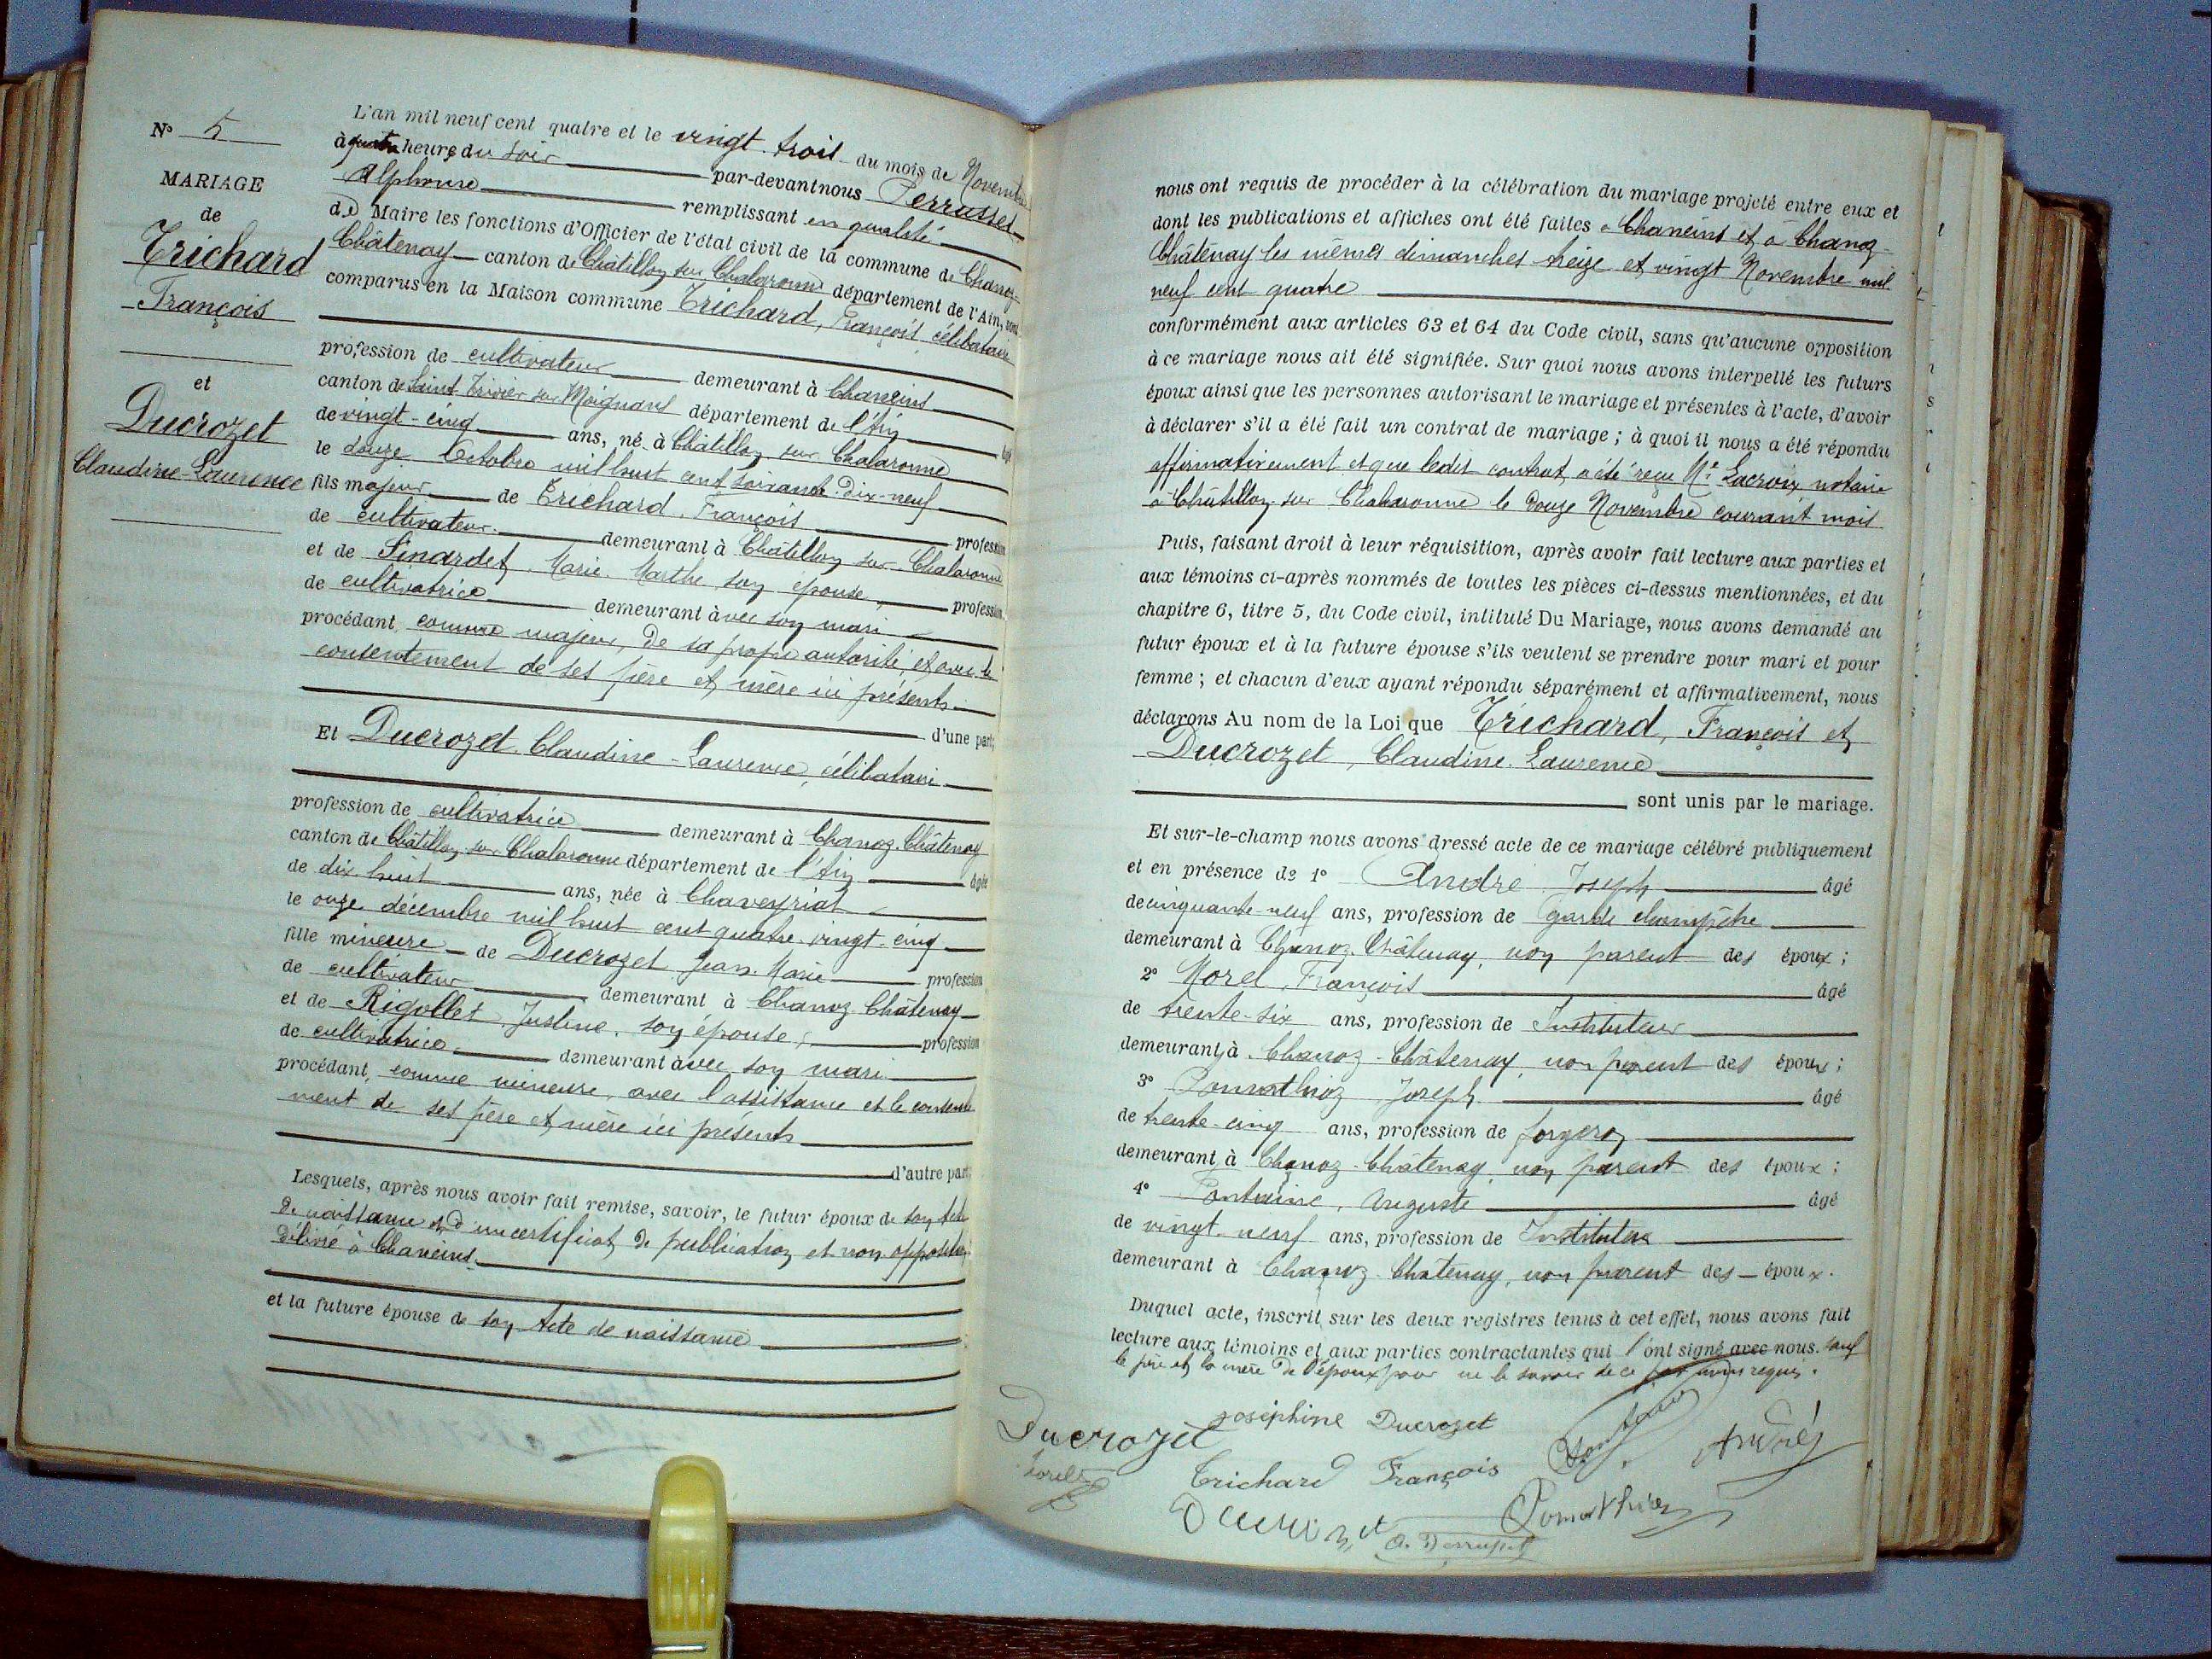 N° 5
MARIAGE
de
Trichard
François
et
Ducrozet
Claudine-Laurence
L'an mil neuf cent quatre et le vingt-trois du mois de Novembre
à quatre heures du soir par-devant nous Perrusset
Alphonse remplissant en qualité
de Maire les fonctions d'Officier de l'état civil de la commune de Chanoz-
Châtenay canton de Châtillon sur Chalaronne département de l'Ain, sont
comparus en la Maison commune Trichard, François célibataire
profession de cultivateur demeurant à Chaneins
canton de Saint Trivier sur Moignans département de l'Ain âgé
de vingt-cinq ans, né à Châtillon sur Chalaronne
le douze Octobre mil huit cent soixante-dix-neuf
fils majeur de Trichard, François profession
de cultivateur demeurant à Châtillon sur Chalaronne
et de Sinardet, Marie Marthe son épouse, profession
de cultivatrice demeurant avec son mari
procédant comme majeur, de sa propre autorité et avec le
consentement de ses père et mère ici présents
d'une part;
Et Ducrozet Claudine-Laurence, célibataire
profession de cultivatrice demeurant à Chanoz-Châtenay
canton de Châtillon sur Chalaronne département de l'Ain âgée
de dix-huit ans, née à Chaveyriat
le onze décembre mil huit cent quatre-vingt-cinq
fille mineure de Ducrozet Jean-Marie profession
de cultivateur demeurant à Chanoz-Châtenay
et de Rigollet, Justine, son épouse, profession
de cultivatrice demeurant avec son mari
procédant, comme mineure, avec l'assistance et le consente-
ment de ses père et mère ici présents
d'autre part;
Lesquels, après nous avoir fait remise, savoir, le futur époux de son Acte
de naissance et d'un certificat de publication et non opposition
délivré à Chaneins
et la future épouse de son Acte de naissance
nous ont requis de procéder à la célébration du mariage projeté entre eux et
dont les publications et affiches ont été faites à Chaneins et à Chanoz-
Châtenay les mêmes dimanches treize et vingt Novembre mil
neuf cent quatre
conformément aux articles 63 et 64 du Code civil, sans qu'aucune opposition
à ce mariage nous ait été signifiée. Sur quoi nous avons interpellé les futurs
époux ainsi que les personnes autorisant le mariage et présentes à l'acte, d'avoir
à déclarer s'il a été fait un contrat de mariage ; à quoi il nous a été répondu
affirmativement et que ledit contrat a été reçu Me Lacroix notaire
à Châtillon sur Chalaronne le douze Novembre courant mois
Puis, faisant droit à leur réquisition, après avoir fait lecture aux parties et
aux témoins ci-après nommés de toutes les pièces ci-dessus mentionnées, et du
chapitre 6, titre 5, du Code civil, intitulé Du Mariage, nous avons demandé au
futur époux et à la future épouse s'ils veulent se prendre pour mari et pour
femme ; et chacun d'eux ayant répondu séparément et affirmativement, nous
déclarons Au nom de la Loi que Trichard, François et
Ducrozet, Claudine-Laurence
sont unis par le mariage.
Et sur-le-champ nous avons dressé acte de ce mariage célébré publiquement
et en présence de 1° André Joseph âgé
de cinquante-neuf ans, profession de garde champêtre
demeurant à Chanoz-Châtenay, non parent des époux ;
2° Morel, François âgé
de trente-six ans, profession de Instituteur
demeurant à Chanoz-Châtenay, non parent des époux ;
3° Pomathioz Joseph âgé
de trente-cinq ans, profession de forgeron
demeurant à Chanoz-Châtenay, non parent des époux ;
4° Fontaine, Auguste âgé
de vingt-neuf ans, profession de Instituteur
demeurant à Chanoz-Châtenay, non parent des époux.
Duquel acte, inscrit sur les deux registres tenus à cet effet, nous avons fait
lecture aux témoins et aux parties contractantes qui l'ont signé avec nous. sauf
le père et la mère de l'époux pour ne le savoir de ce requis.
Ducrozet
Joséphine Ducrozet
André
Trichard François
Ducrozet
A. Perrusset